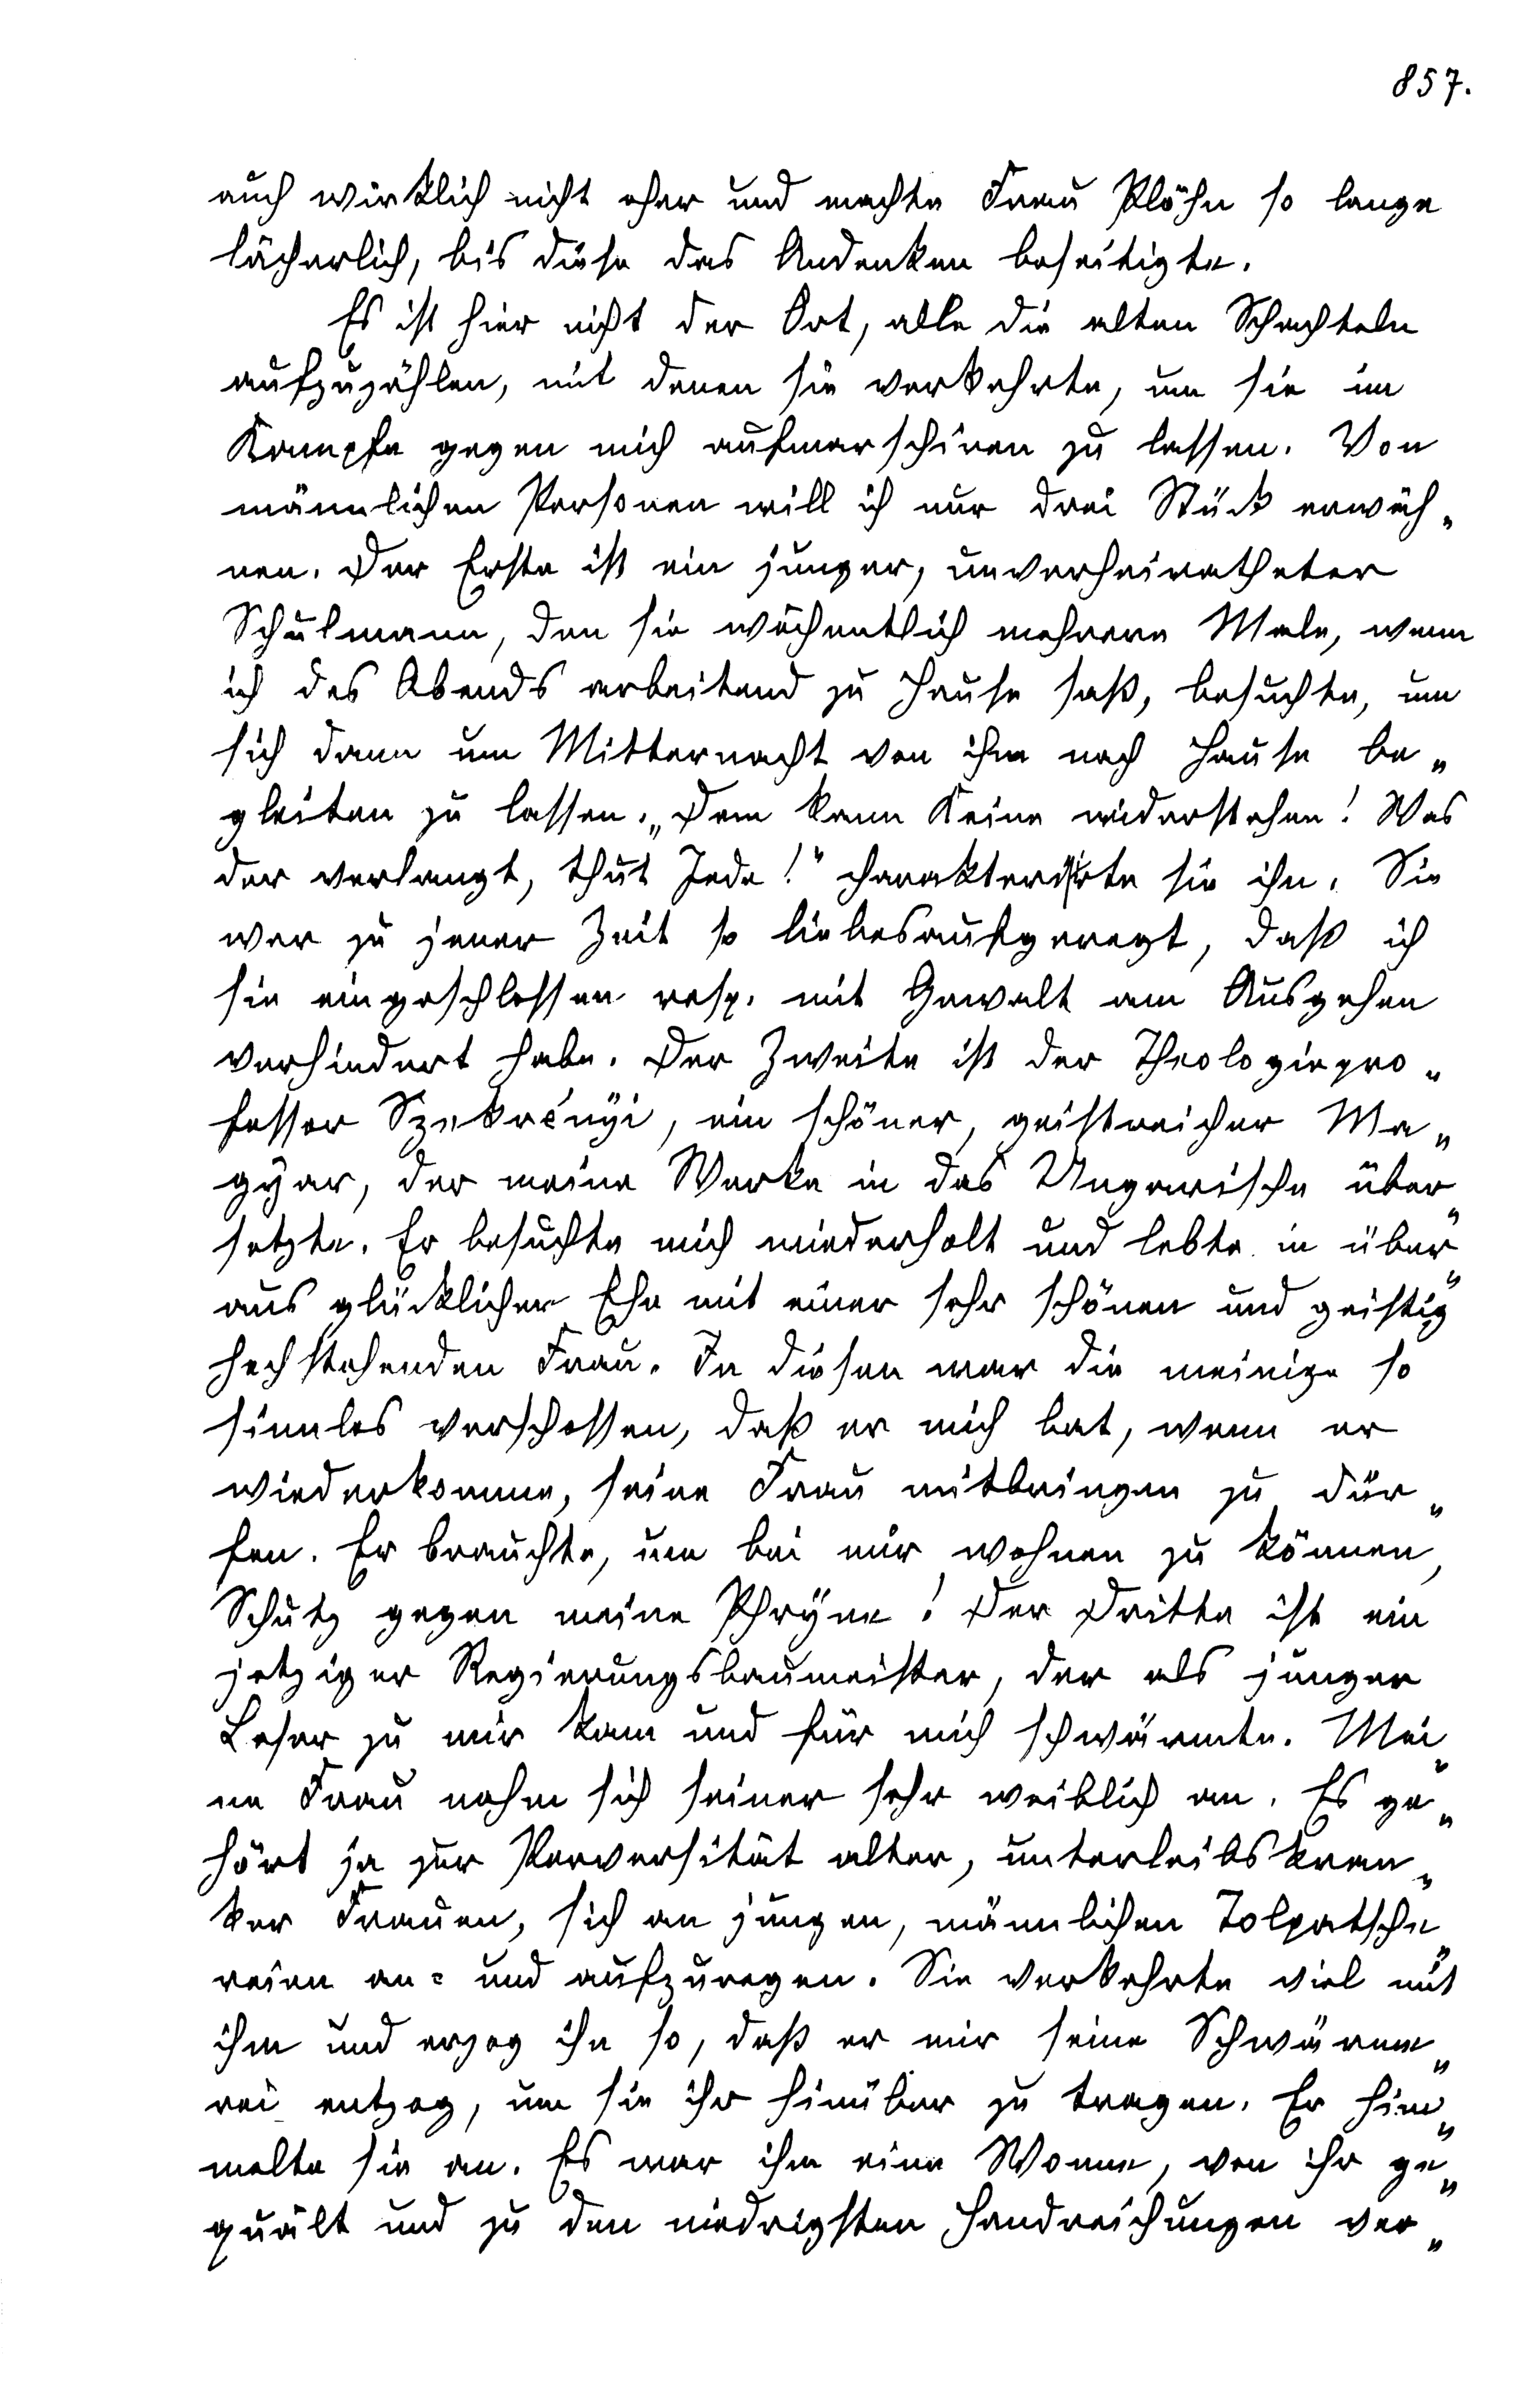 857.
auch wirklich nicht eher und machte Frau Plöhn so lange
lächerlich, bis diese das Andenken beseitigte.
Es ist hier nicht der Ort, alle die alten Schachteln
aufzuzählen, mit denen sie verkehrte, um sie im
Kampfe gegen mich aufmarschiren zu lassen. Von
männlichen Personen will ich nur drei Stück erwäh„
nen. Der Erste ist ein junger, unverheiratheter
Schulmann, den sie wöchentlich mehrere Male, wenn
ich des Abends arbeitend zu Hause saß, besuchte, um
sich dann um Mitternacht von ihm nach Hause be„
gleiten zu lassen. „Dem kann Keine widerstehen! Was
der verlangt, thut Jede!“ charakterisirte sie ihn. Sie
war zu jener Zeit so liebesaufgeregt, daß ich
sie eingeschlossen resp. mit Gewalt am Ausgehen
verhindert habe. Der Zweite ist der Theologiepro„
fessor Szekrényi, ein schöner, geistreicher Ma„
gyar, der meine Werke in das Ungarische über„
setzte. Er besuchte mich wiederholt und lebte in über„
aus glücklicher Ehe mit einer sehr schönen und geistig
hochstehenden Frau. In diesen war die meinige so
sinnlos verschossen, daß er mich bat, wenn er
wiederkomme, seine Frau mitbringen zu dür„
fen. Er brauchte, um bei mir wohnen zu können,
Schutz gegen meine Phryne! Der Dritte ist ein
jetziger Regierungsbaumeister, der als junger
Leser zu mir kam und für mich schwärmte. Mei„
ne Frau nahm sich seiner sehr weiblich an. Es ge„
hört ja zur Perversität alter, unterleibskran„
ker Frauen, sich an jungen, männlichen Tolpatsche„
reien an= und aufzuregen. Sie verkehrte viel mit
ihm und erzog ihn so, daß er mir seine Schwärme„
rei entzog, um sie ihr hinüber zu tragen. Er him„
melte sie an. Es war ihm eine Wonne, von ihr ge„
quält und zu den niedrigsten Handreichungen ver„